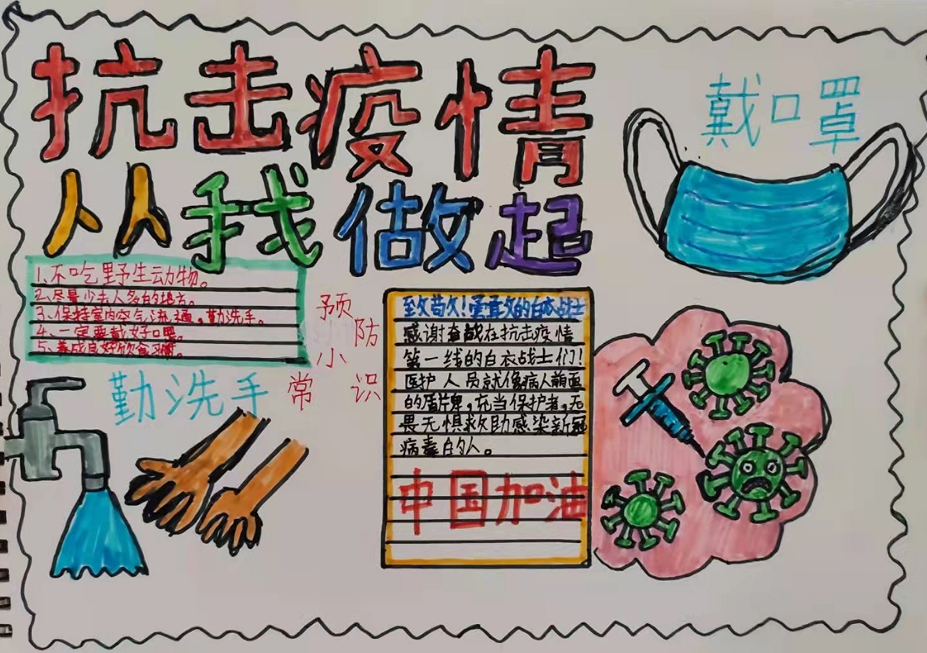 抗击疫情
从我做起
戴口罩
1、不吃野生动物。
2、尽量少去人多的地方。
3、保持室内空气流通,勤洗手。
4、一定要戴好口罩
5、养成良好饮食习惯。
预防小常识
勤洗手
致敬!可爱的白衣战士
感谢奋战在抗击疫情
第一线的白衣战士们!
医护人员就像病人前面
的盾牌,充当保护者,无
畏无惧救助感染新冠
病毒的人。
中国加油